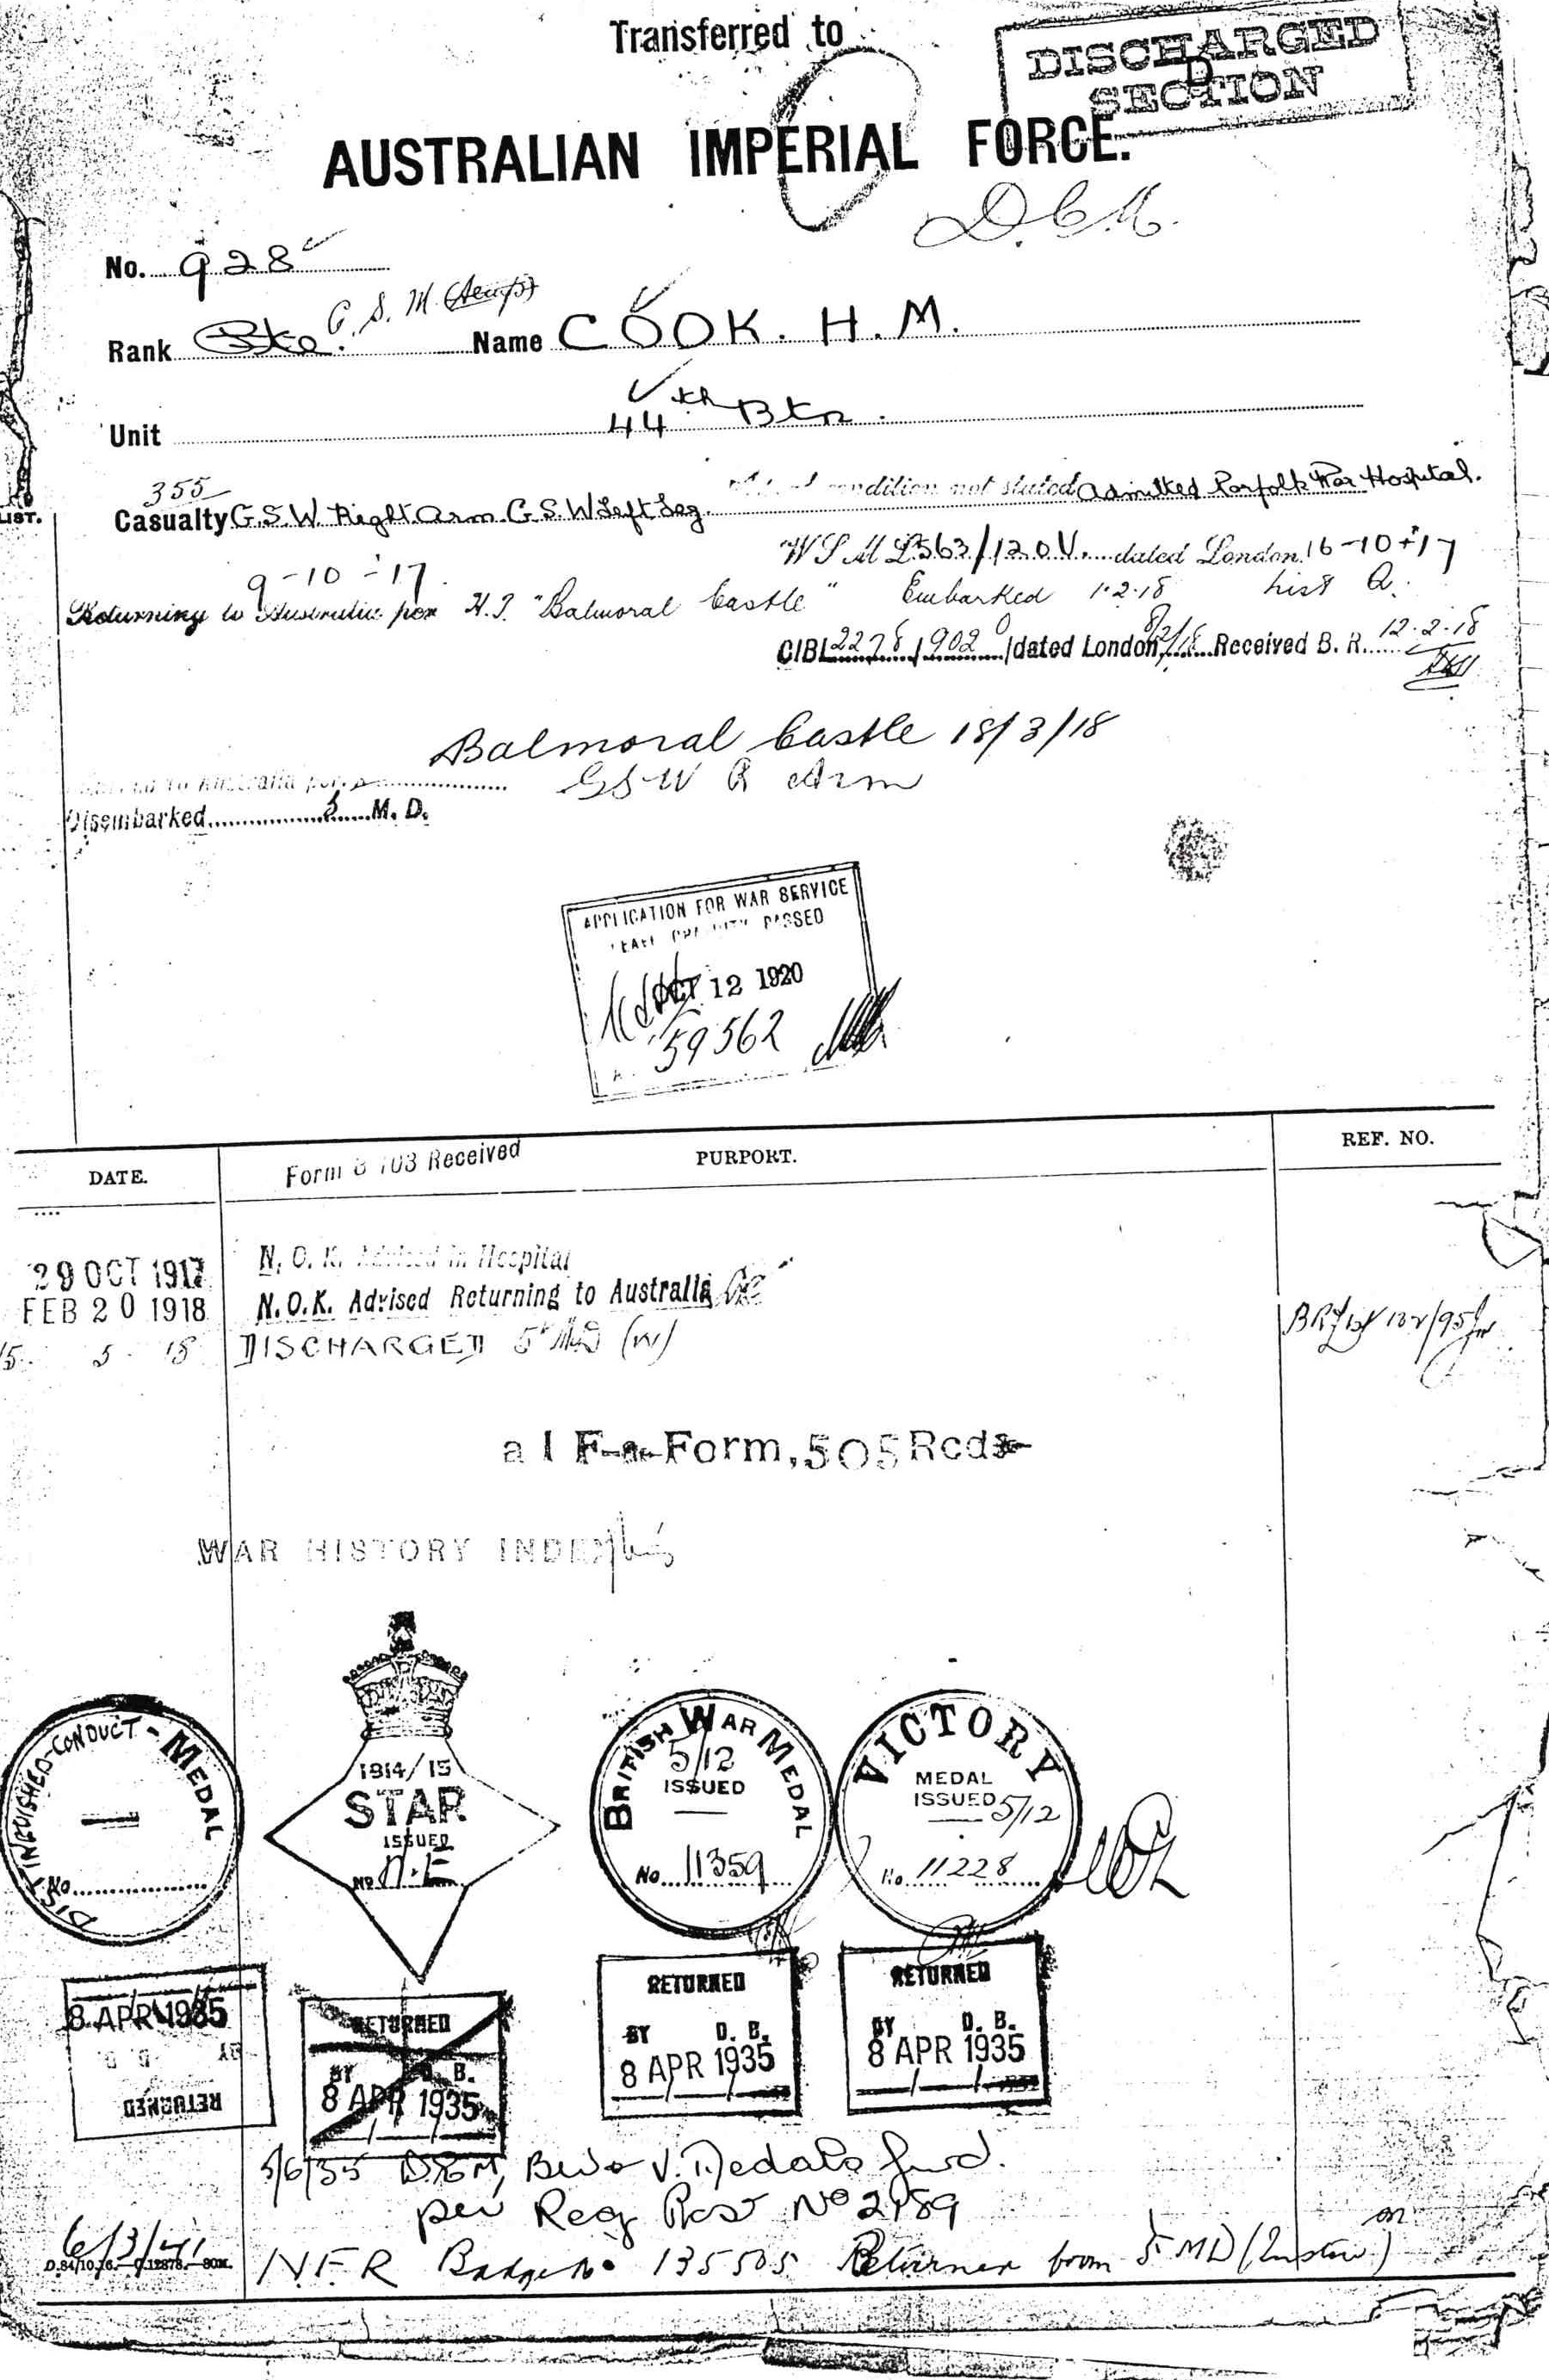 Transferred to
DISCHARGED
D
SECTION
AUSTRALIAN IMPERIAL FORCE.
D.C.M.
No. 928
Rank Pte. C. S. M. (Temp) Name COOK. H. M.
Unit 44th Btn.
355
LIST.
Casualty G.S.W. Right Arm. G.S.W Left Leg. condition not stated Admitted Norfolk War Hospital.
9-10-17. W S M L 563/120V. dated London 16-10-17
Returning to Australia per H.T. "Balmoral Castle" Embarked 1.2.18 List Q.
CIBL 2278/902 dated London 8/2/18 Received B. R. 12.2.18
Balmoral Castle 18/3/18
to Australia per
GSW R Arm
Disembarked 5 M. D.
APPLICATION FOR WAR SERVICE
PASSED
OCT 12 1920
59562
DATE. Form B 103 Received PURPORT. REF. NO.
29 OCT 1917 N. O. K. Advised in Hospital
FEB 20 1918 N.O.K. Advised Returning to Australia
15. 5. 18 DISCHARGED 5th MD
a I F Form, 505 Rcd
WAR HISTORY INDEX
DISTINGUISHED-CONDUCT-MEDAL
No
1914/15
STAR
ISSUED
No N.E
BRITISH WAR MEDAL
5/12
ISSUED
No 11359
VICTORY
MEDAL
ISSUED 5/12
No. 11228
8 APR 1935
BY D. B.
RETURNED
RETURNED
BY D. B.
8 APR 1935
RETURNED
BY D. B.
8 APR 1935
RETURNED
BY D. B.
8 APR 1935
5/6/35 DCM, BW & V. Medals fwd.
per Reg Post No 2189
6/3/41 N.F.R Badge No 135505 Returned from 5 MD
D.84/10.16.—C.12878.—80M.